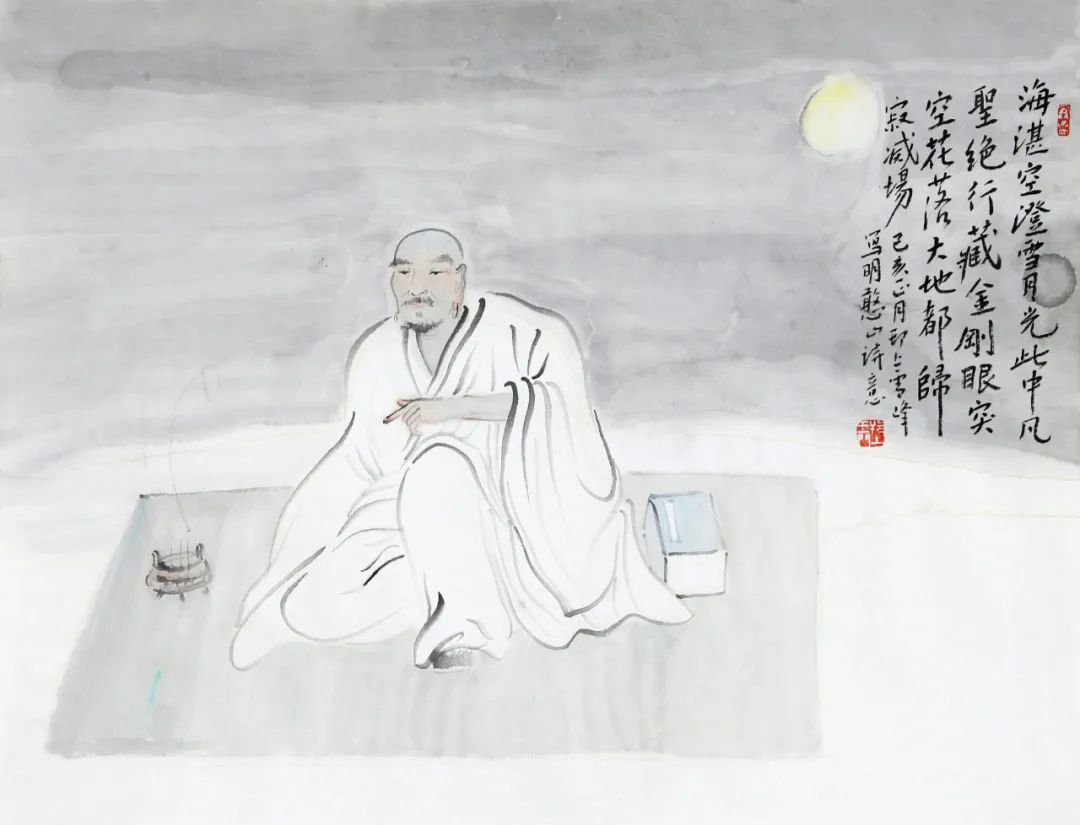 海湛空澄雪月光此中凡
聖绝行藏金剛眼突
空花落大地都歸
寂滅場
己亥正月邗上雪峰
写明憨山诗意